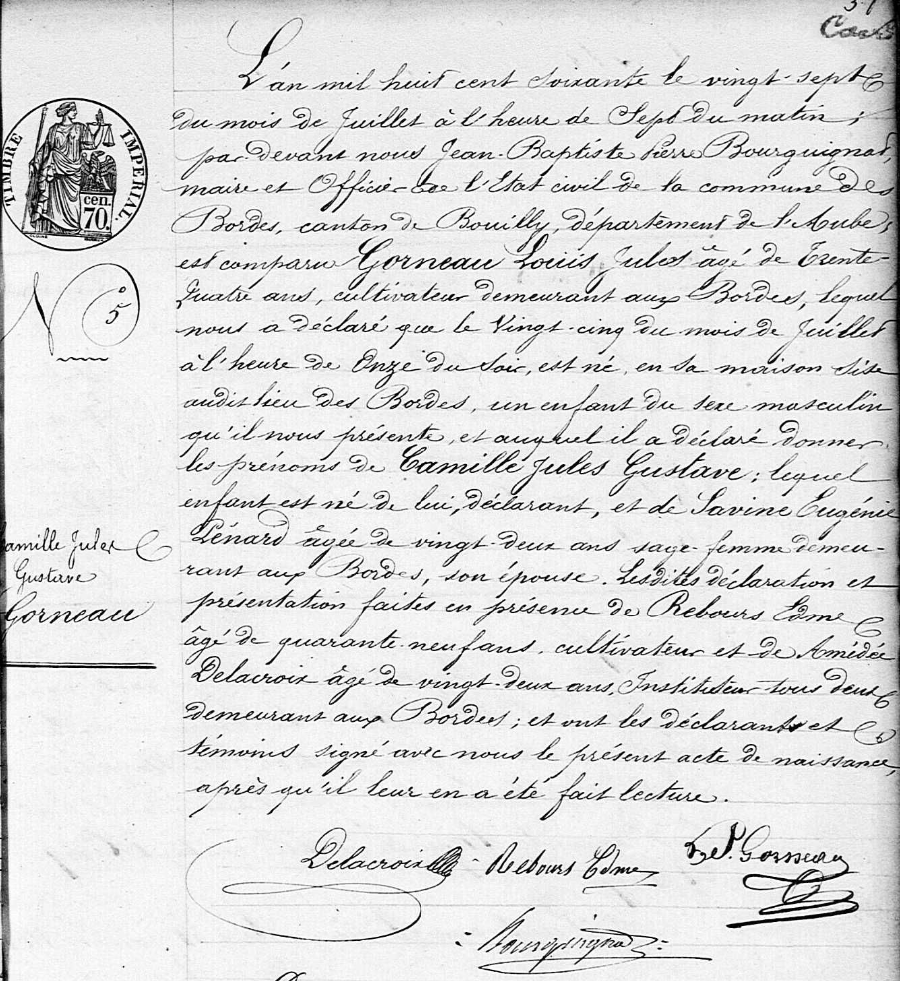 51
TIMBRE IMPERIAL
cen.
70.
N° 5
Camille Jules
Gustave
Gorneau
L'an mil huit cent soixante le vingt-sept
du mois de Juillet à l'heure de Sept du matin ;
par devant nous Jean-Baptiste Pierre Bourguignat,
maire et Officier de l'Etat civil de la commune des
Bordes, canton de Bouilly, département de l'Aube,
est comparu Gorneau Louis Jules âgé de Trente-
quatre ans, cultivateur demeurant aux Bordes, lequel
nous a déclaré que le Vingt-cinq du mois de Juillet
à l'heure de Onze du Soir, est né, en sa maison sise
audit lieu des Bordes, un enfant du sexe masculin
qu'il nous présente, et auquel il a déclaré donner
les prénoms de Camille Jules Gustave ; lequel
enfant est né de lui, déclarant, et de Savine Eugénie
Lénard âgée de vingt-deux ans sage-femme demeu-
rant aux Bordes, son épouse. Lesdites déclaration et
présentation faites en présence de Rebours Edme
âgé de quarante-neuf ans, cultivateur et de Amédée
Delacroix âgé de vingt-deux ans, Instituteur tous deux
demeurant aux Bordes ; et ont les déclarants et
témoins signé avec nous le présent acte de naissance,
après qu'il leur en a été fait lecture.
Delacroix Rebours Edme Gorneau
Bourguignat